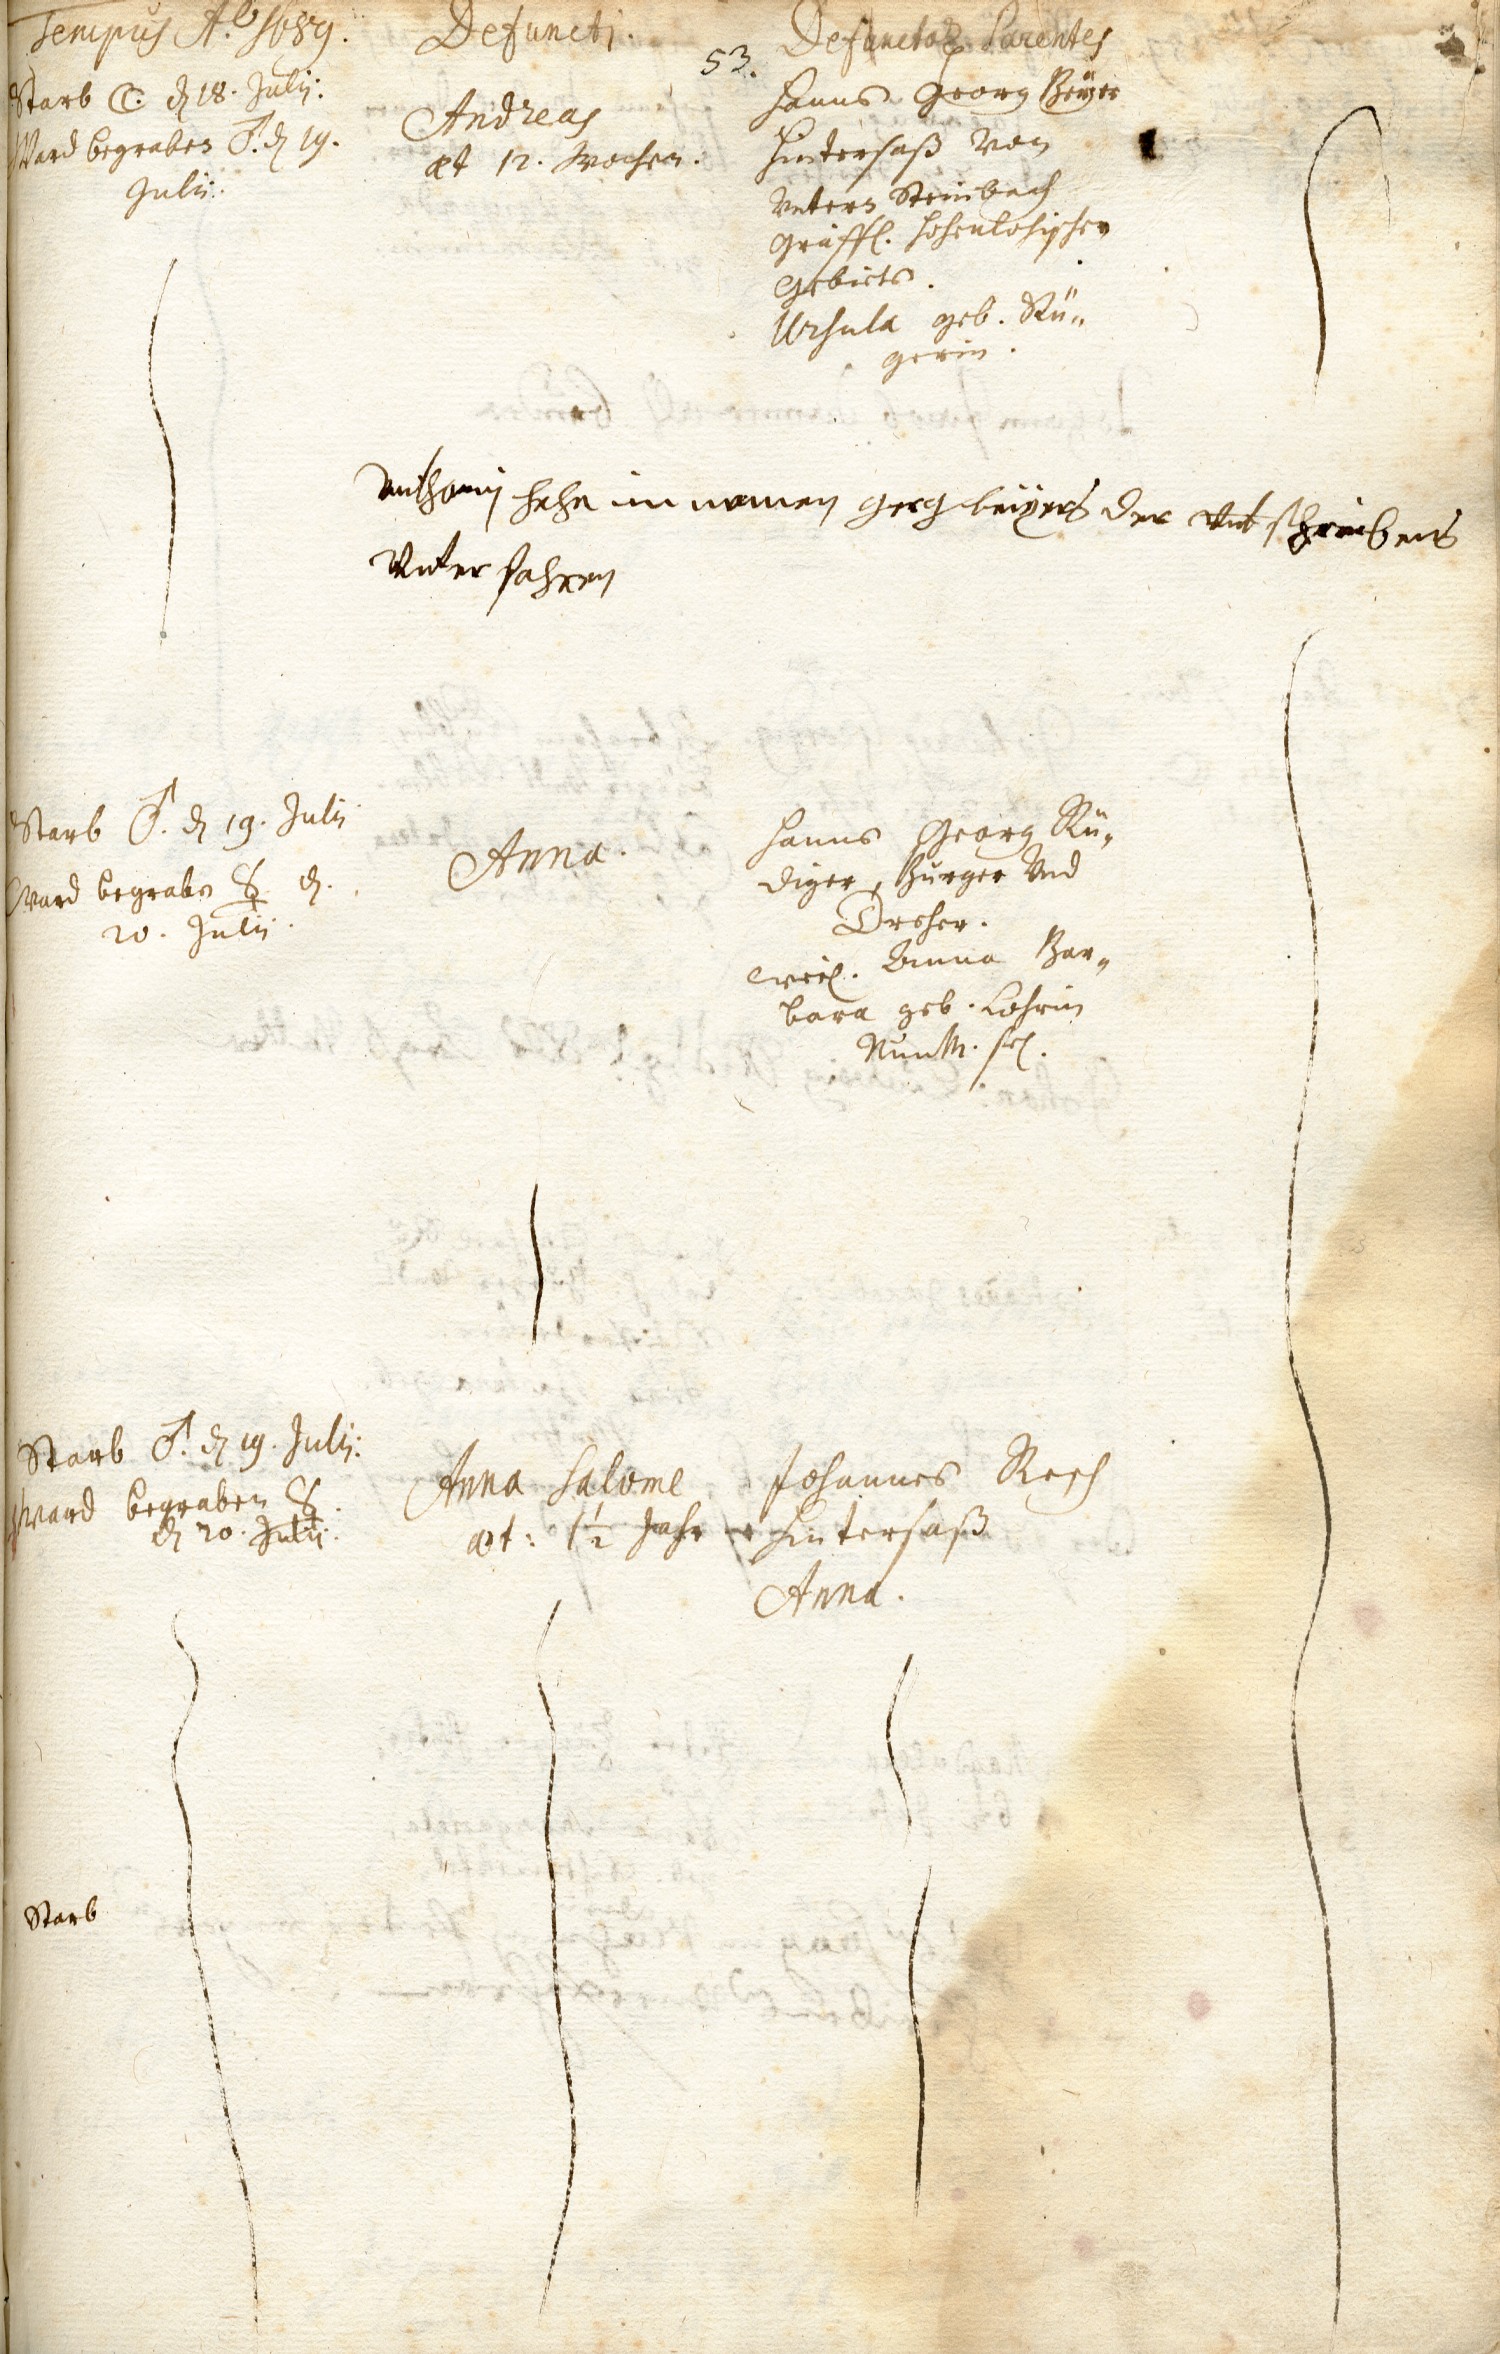 Tempus A.º 1689. Defuncti. 53. Defunctoꝝ Parentes
Starb ☾. d. 18. Julij.
Ward begraben ♂. d. 19.
Julij.
Andreas
æt 12. Wochen.
Hanns Georg Beÿer
Hintersaß von
Untern Steinbach
Gräffl. Hohenlohischen
Gebiets.
Ursula geb. Rü„
gerin.
Anthonij hehn im namen gerg beiyers der unt schreibens
Unter fahren
Starb ♂. d. 19. Julij
Ward begrabn ☿. d.
20. Julij.
Anna.
Hanns Georg Rü„
diger, Burger Und
Dreher.
weil. Anna Bar„
bara geb. Lohrin
Nunm. sel.
Starb ♂. d. 19. Julij.
Ward begraben ☿.
d. 20. Julij.
Anna Salome
æt: 1½ Jahr
Johannes Rech
Hintersaß
Anna.
Starb